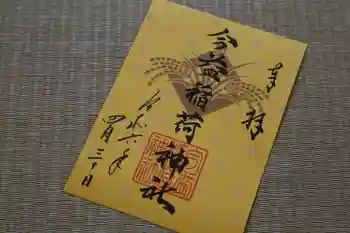 奉拝
今益稲荷神社
令和六年
四月三十日